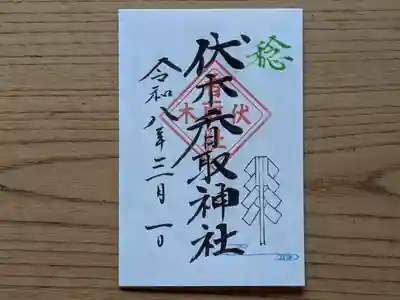 稔
伏木香取神社
令和八年三月一日
伏木